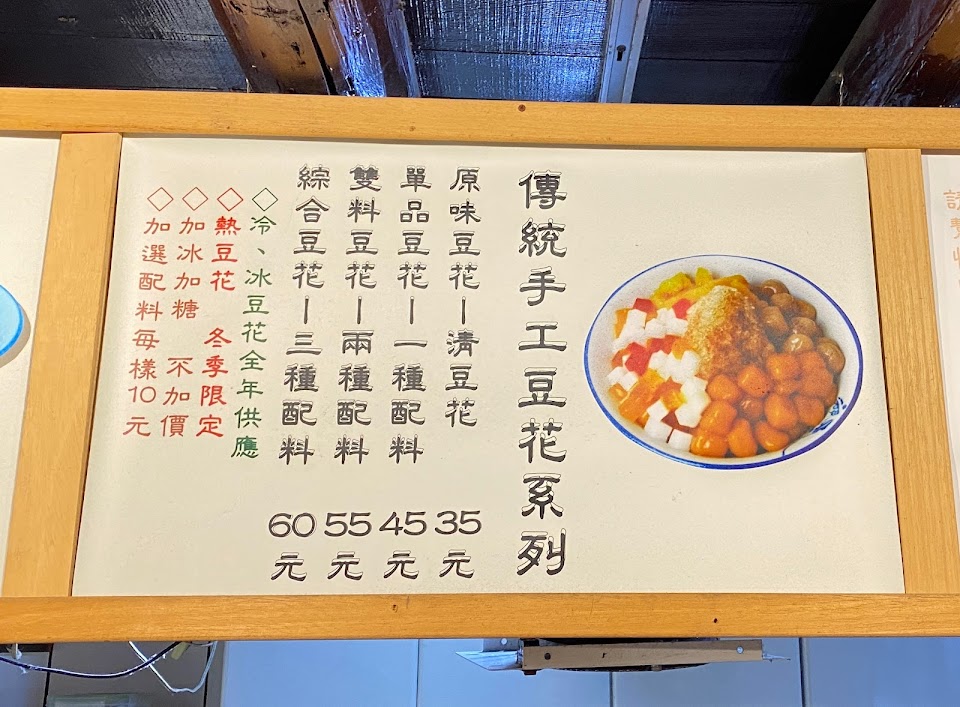 傳統手工豆花系列
原味豆花－清豆花 35元
單品豆花－一種配料 45元
雙料豆花－兩種配料 55元
綜合豆花－三種配料 60元
◇冷、冰豆花全年供應
◇熱豆花 冬季限定
◇加冰加糖 不加價
◇加選配料每樣10元